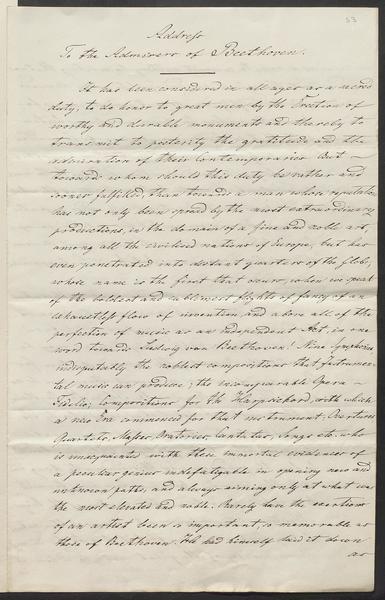 53
Address
To the Admirers of Beethoven.
It has been considered in all ages as a sacred
duty, to do honor to great men by the Erection of
worthy and durable monuments and thereby to
transmit to posterity the gratitude and the
admiration of their Contemporaries. But –
towards whom should this duty be rather and
sooner fulfilled, than towards a man whose reputation
has not only been spread by the most extraordinary
productions, in the domain of a fine and noble art,
among all the civilised nations of Europe, but has
even penetrated into distant quarters of the Globe,
whose name is the first that occurs, when we speak
of the boldest and sublimest flights of fancy, of an
exhaustless flow of invention and above all of the
perfection of music as an independent Art, in one
word towards Ludwig van Beethoven! Nine Symphonies
indisputably the noblest compositions that Instrumen-
tal music can produce; the incomparable Opera –
Fidelio; Compositions for the Harpsichord, with which
a new Era commenced for that instrument; Overtures
Quartetts, Masses, Oratorios, Cantatas, Songs etc. who
is unacquainted with these immortal evidences of
a peculiar genius indefatigable in opening new and
unknown paths, and always aiming only at what was
the most elevated and noble; Rarely have the exertions
of an artist been so important, so memorable as
those of Beethoven. He had himself laid it down
as